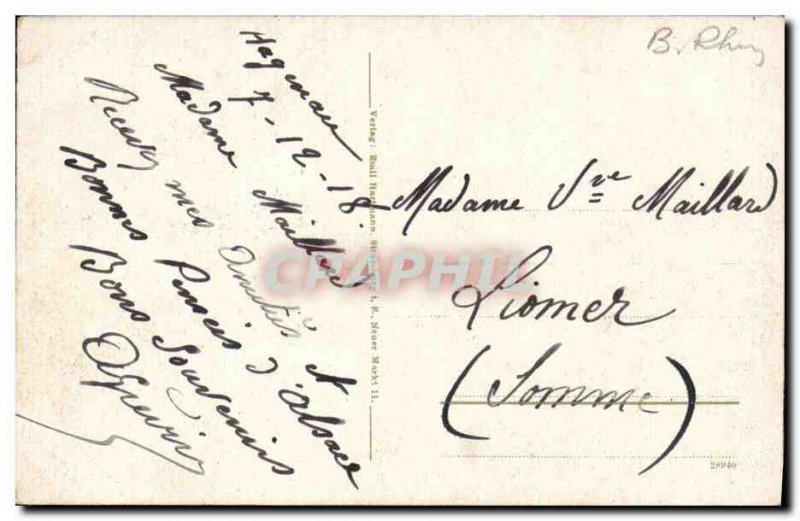 Haguenau
7-12-18.
Madame Maillard
Recevez mes amitiés et
Bonnes Pensées d'alsace
Bons Souvenirs
Verlag: Emil Hartmann, Strassburg i. E. Neuer Markt 11.
B. Rhin
Madame Vve Maillard
Liomer
(Somme)
28940
CPAPHIL